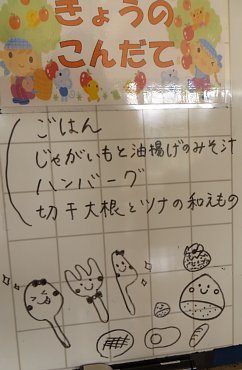 きょうの
こんだて
ごはん
じゃがいもと油揚げのみそ汁
ハンバーグ
切干大根とツナの和えもの